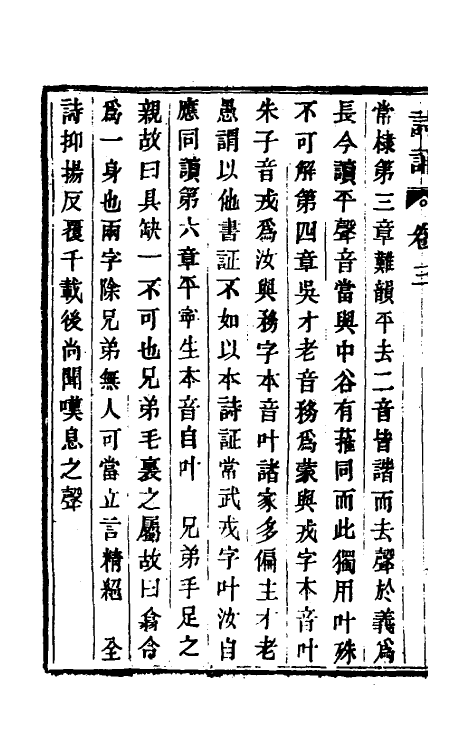 詩誦 卷三
常棣第三章難韻平去二音皆諧而去聲於義爲
長今讀平聲音當與中谷有蓷同而此獨用叶殊
不可解第四章吳才老音務爲蒙與戎字本音叶
朱子音戎爲汝與務字本音叶諸家多偏主才老
愚謂以他書証不如以本詩証常武戎字叶汝自
應同讀第六章平寧生本音自叶 兄弟手足之
親故曰具缺一不可也兄弟毛裏之屬故曰翕合
爲一身也兩字除兄弟無人可當立言精絕 全
詩抑揚反覆千載後尚聞嘆息之聲